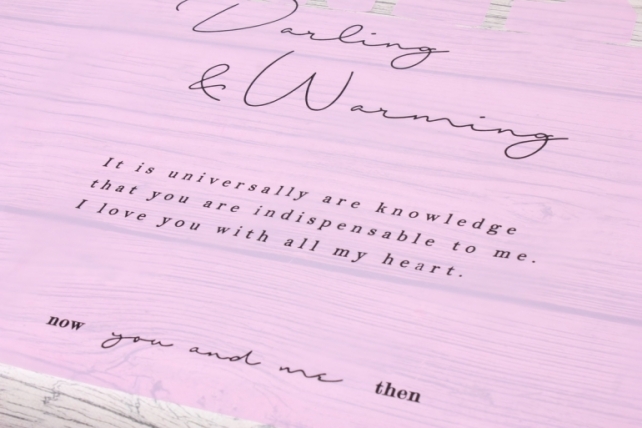 Darling
& Warming
It is universally are knowledge
that you are indispensable to me.
I love you with all my heart.
now you and me then